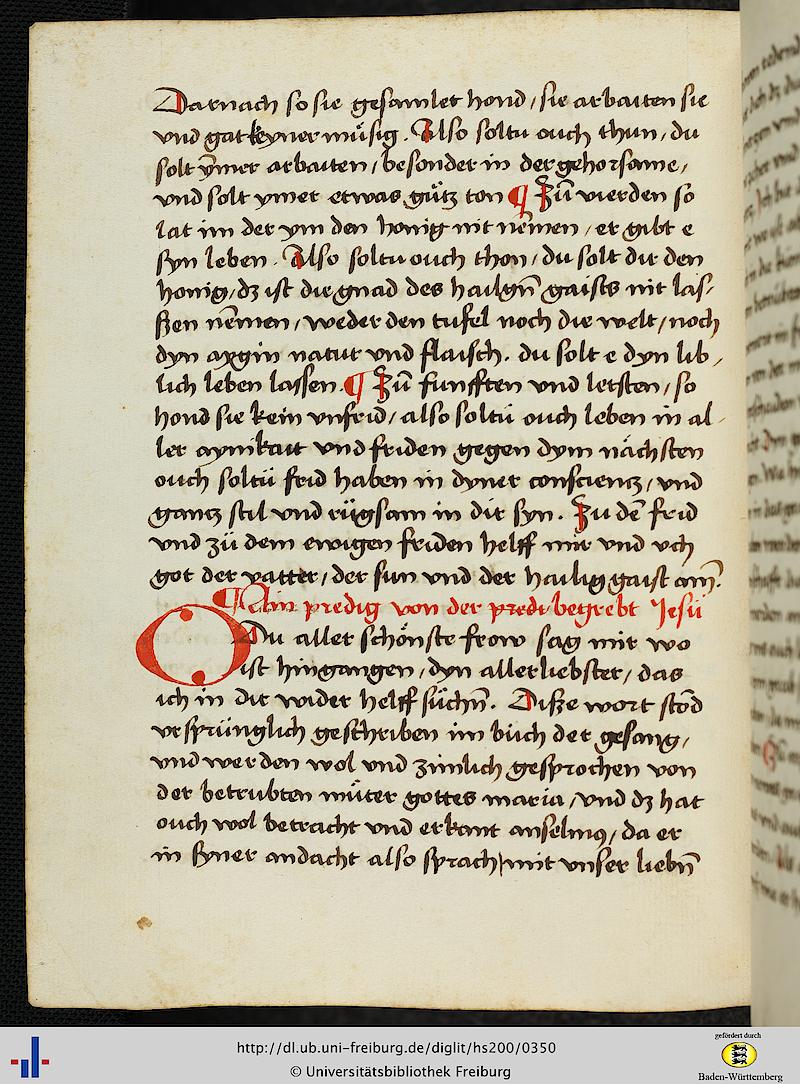 Darnach so sie gesamlet hond / sie arbaiten sie
vnd gat keyner müsig . Also soltu ouch thun / du
solt ym̄er arbaiten / besonder in der gehorsame /
vnd solt ymer etwas gůtz ton ¶ Zů vierden so
lat im der ym den honig nit nem̄en / er gibt e
syn leben . Also soltu ouch thon / du solt dir den
honig / dz ist die gnad des hailgn̄ gaists nit las⸗
ßen nem̄en / weder den tufel noch die welt / noch
dyn aygin natur vnd flaisch . du solt e dyn lib ⸗
lich leben lassen . ¶ Zů funfften vnd letsten / so
hond sie kein vnfrid / also soltü ouch leben in al ⸗
ler aynikait vnd friden gegen dym nächsten
ouch soltü frid haben in dyner conscientz / vnd
gantz stil vnd rügsam in dir syn . Zu dem̄ frid
vnd zü dem ewigen friden helff mir vnd vch
got der vatter / der sun vnd der hailig gaist am̄ .
¶ Ain predig von der begrebt Jesü
O Du aller schönste frow sag mir wo
ist hingangen / dyn allerliebster / das
ich in dir wider helff süchn̄ . Diße wort stöd
vrsprünglich geschriben im büch der gesang /
vnd werden wol vnd zimlich gesprochen von
der betrubten müter gottes maria / vnd dz hat
ouch wol betracht vnd erkant anselmꝰ / da er
in syner andacht also sprach / mit vnser liebn̄
http://dl.ub.uni-freiburg.de/diglit/hs200/0350
© Universitätsbibliothek Freiburg
gefördert durch
Baden-Württemberg